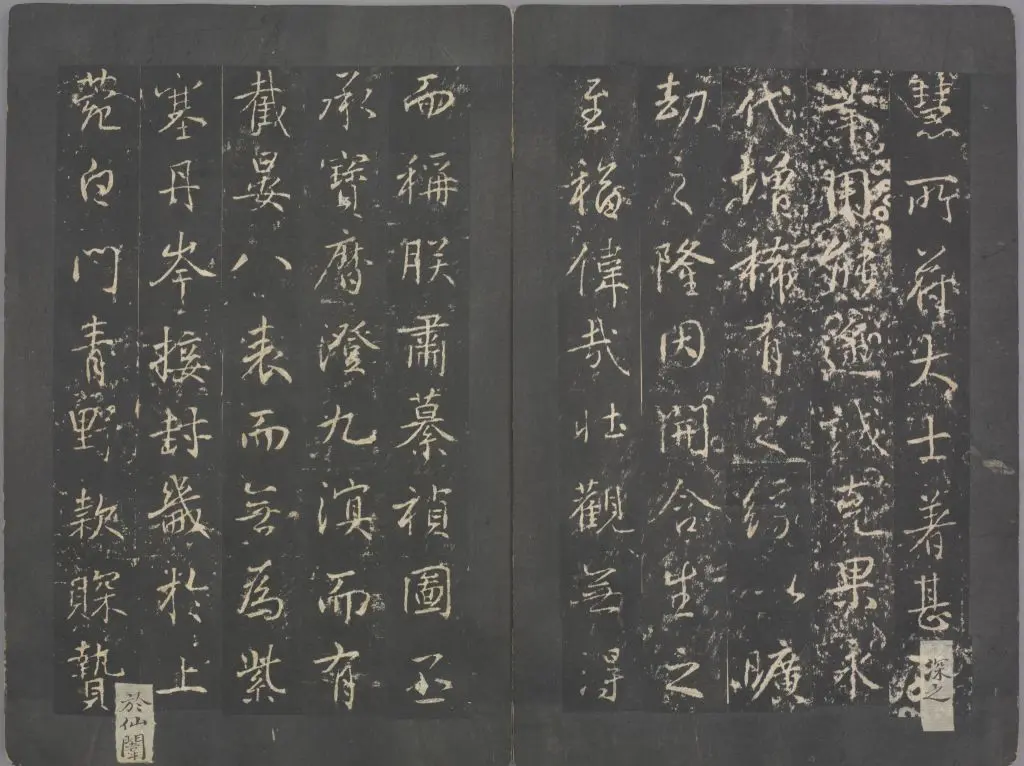 慧所荐大士著甚
深之
用誠克果永
代增稀有之曠
劫之隆因開含生之
至福偉哉壯觀無得
而稱朕肅纂禎圖丕
承寶曆澄九溟而有
截晏八表而無為紫
塞丹岑接封畿於上
菀白門青野款賝贄
於仙